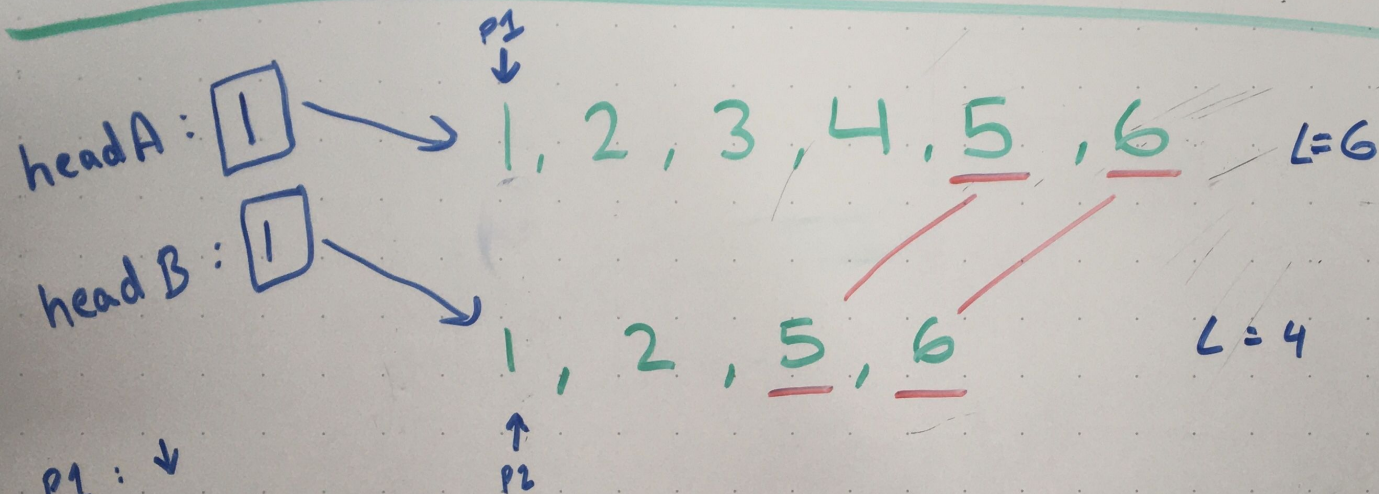 P1
headA : 1 1, 2, 3, 4, 5, 6 L=6
headB : 1 1, 2, 5, 6 L=4
P2
P1 :